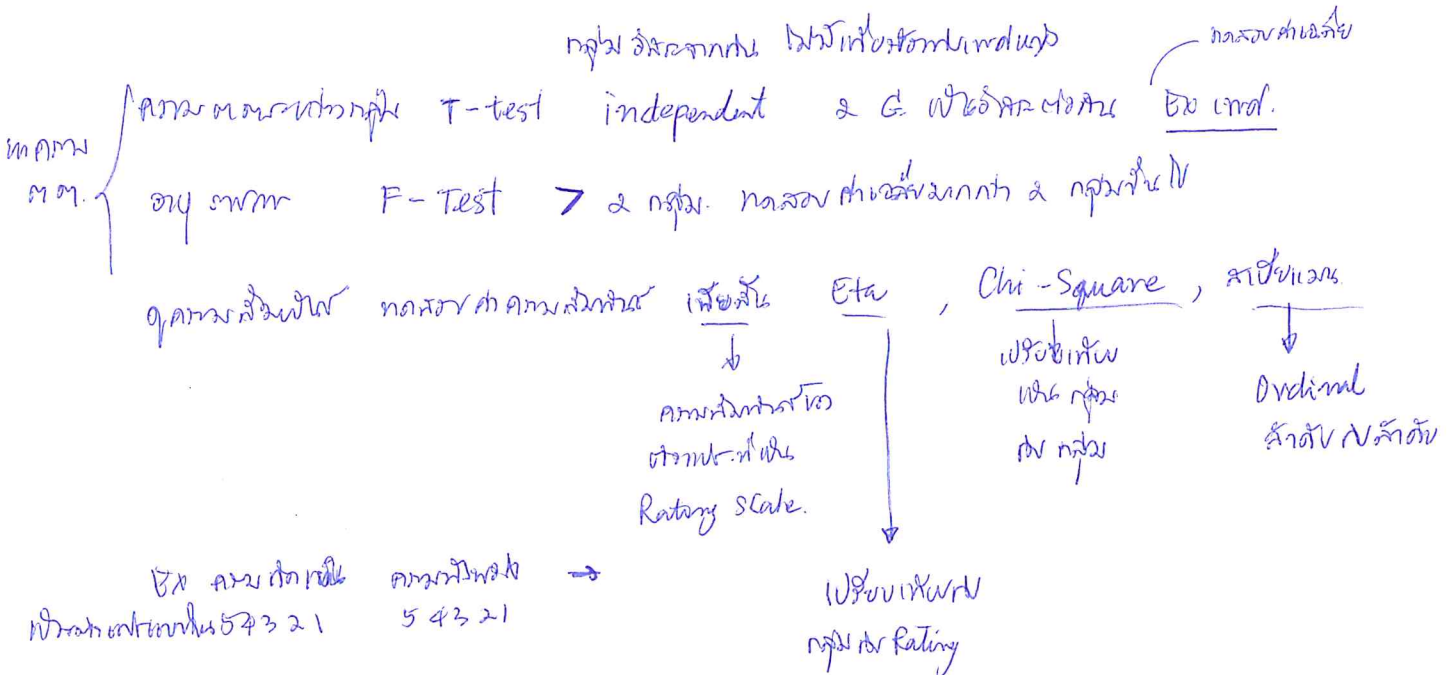 กลุ่มอิสระจากกัน ไม่มี
ทดสอบค่าเฉลี่ย
ความ T-test independent 2 G. เป็นอิสระต่อกัน เพศ.
หาความ
ต ต.
อายุ F-Test > 2 กลุ่ม. ทดสอบค่าเฉลี่ยมากกว่า 2 กลุ่มขึ้นไป
ดูความสัมพันธ์ ทดสอบค่าความสัมพันธ์ เพียร์สัน Eta , Chi-Square , สเปียแมน
ความสัมพันธ์ของ
ตัวแปรที่เป็น
Rating Scale.
เปรียบเทียบ
เป็น กลุ่ม
กับ กลุ่ม
Ordinal
ลำดับกับลำดับ
ความคิดเห็น ความพึงพอใจ →
5 4 3 2 1 5 4 3 2 1
เปรียบเทียบกับ
กลุ่มกับ Rating